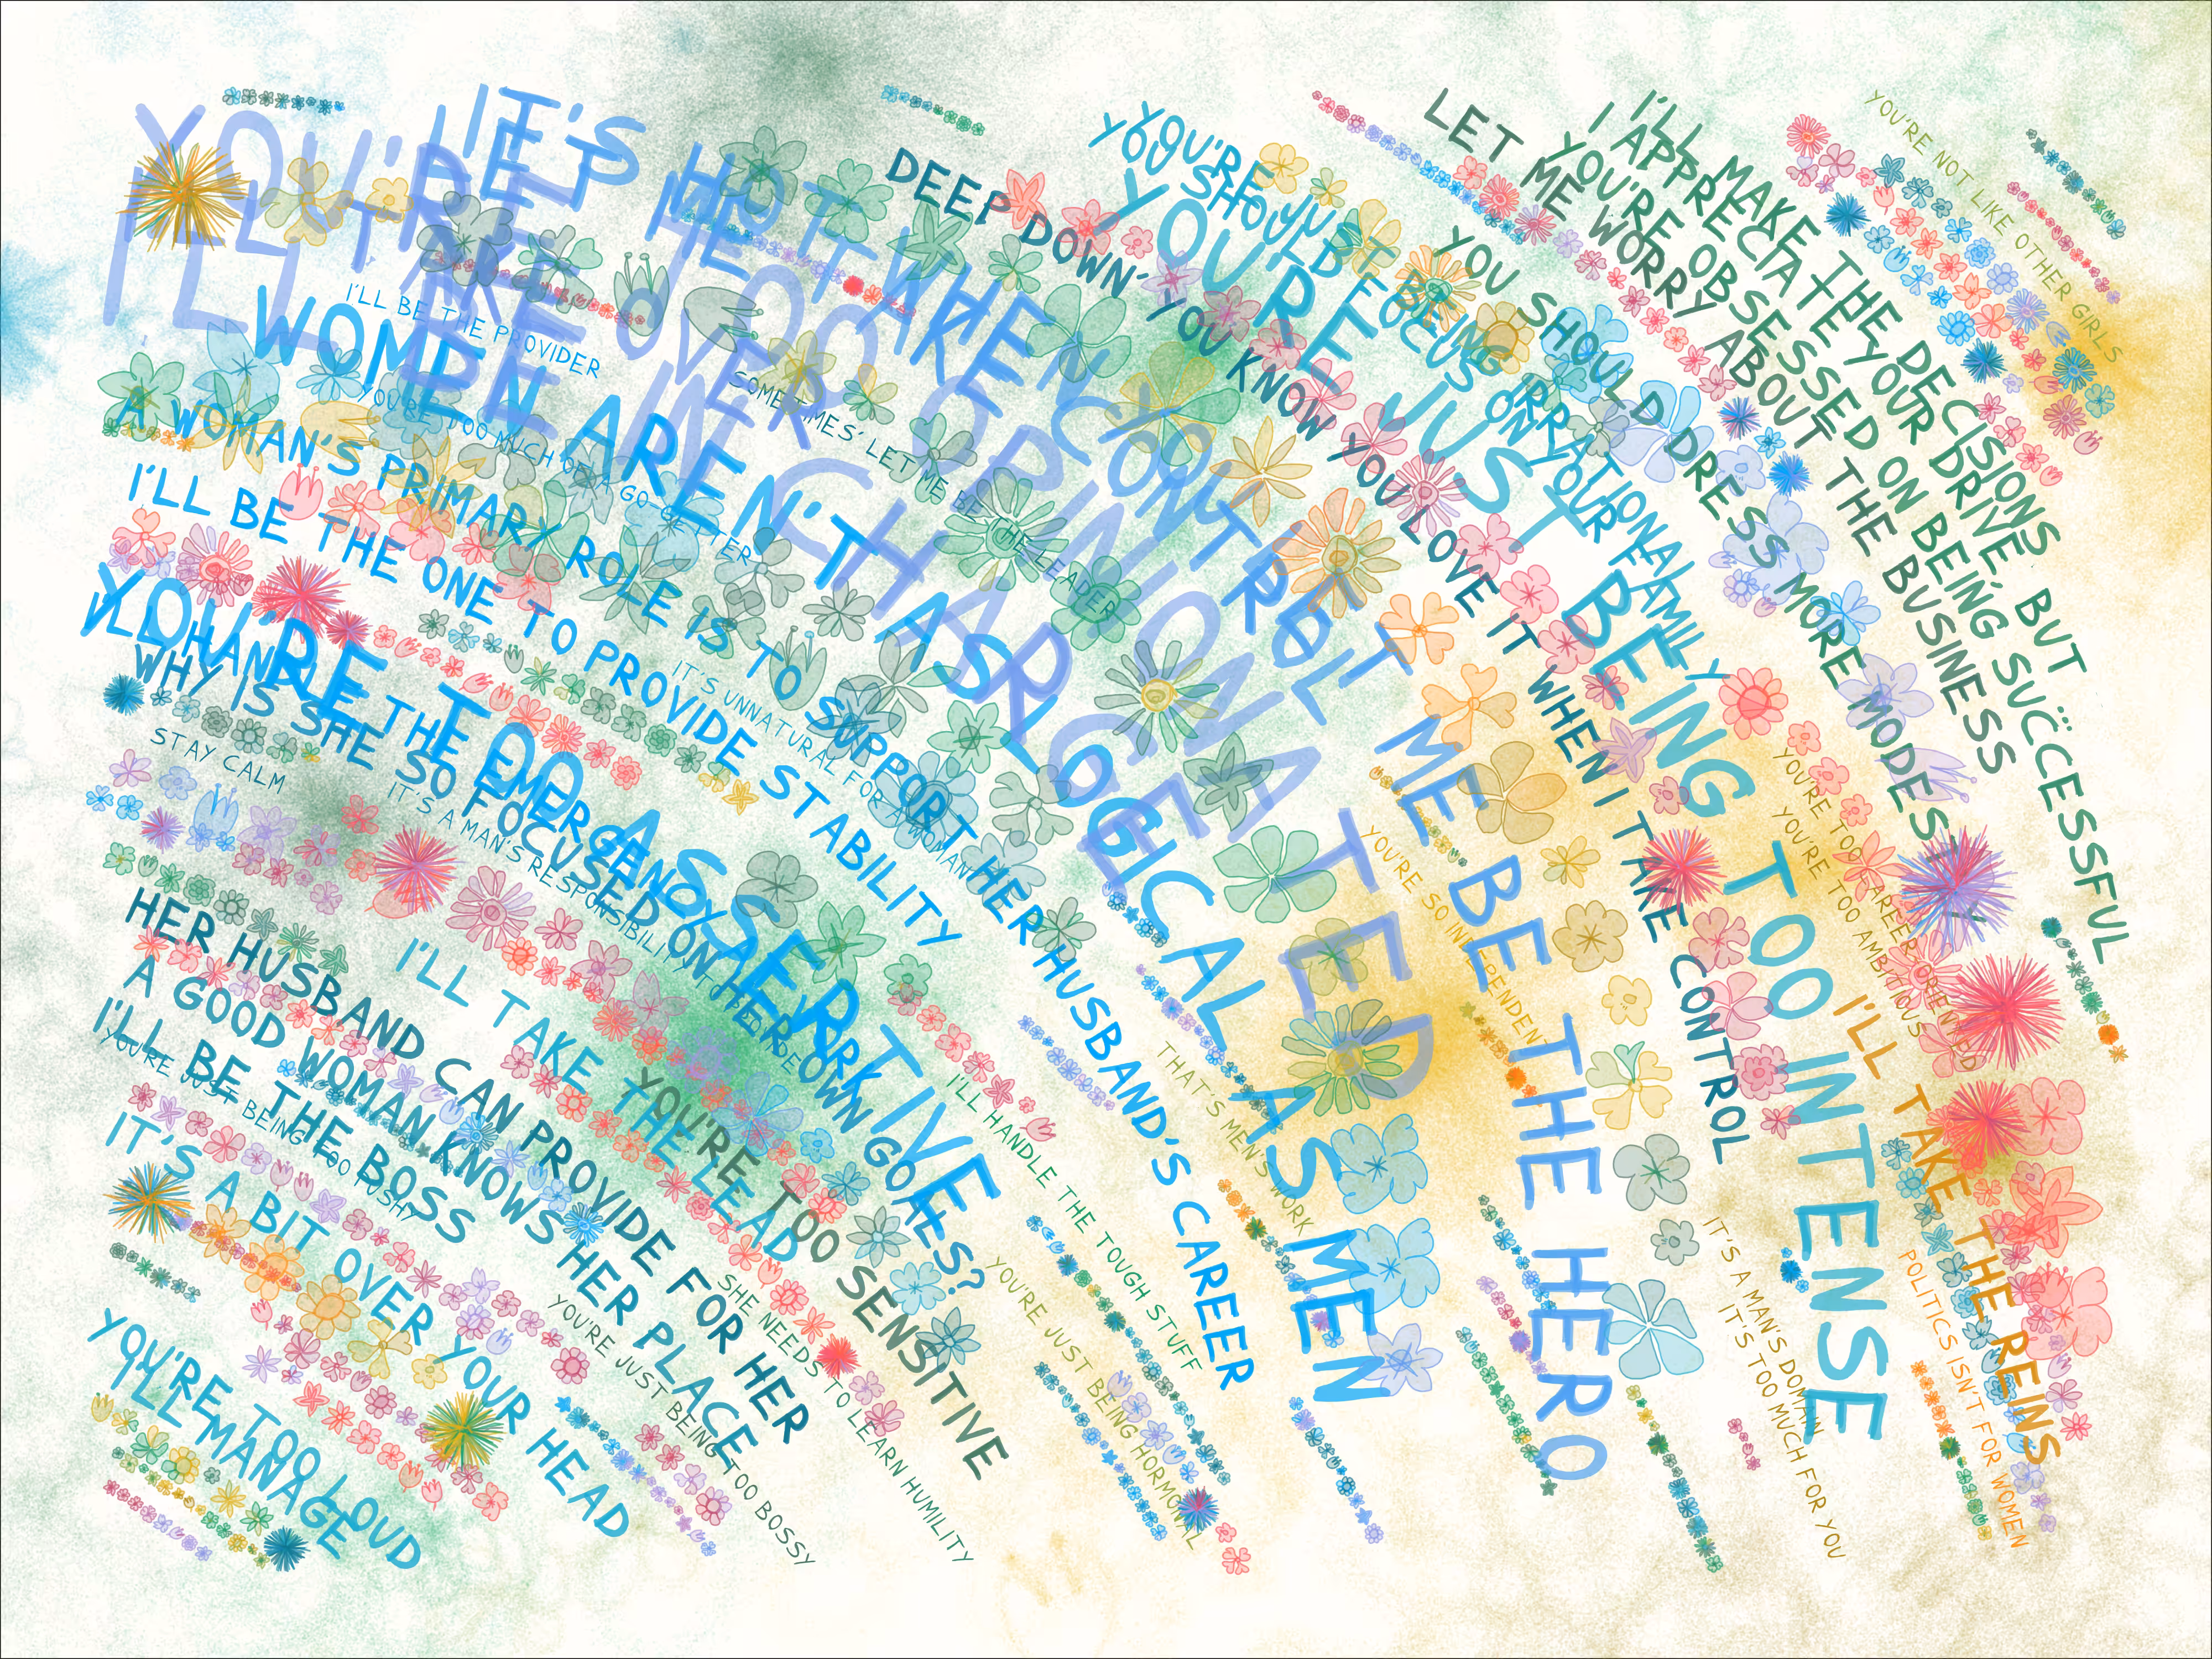 YOU'RE TOO OPINIONATED
I'LL TAKE OVER
I'LL BE IN CHARGE
IT'S HOT WHEN YOU LET ME BE THE HERO
LET ME TAKE CONTROL
WOMEN AREN'T AS LOGICAL AS MEN
I'LL BE THE PROVIDER
YOU'RE TOO MUCH OF A GO-GETTER
SOMETIMES' LET ME BE THE LEADER
DEEP DOWN' YOU KNOW YOU LOVE IT WHEN I TAKE CONTROL
YOU'RE JUST BEING IRRATIONAL
YOU SHOULD FOCUS ON YOUR FAMILY
YOU'RE JUST BEING TOO INTENSE
YOU SHOULD DRESS MORE MODESTLY
LET ME WORRY ABOUT THE BUSINESS
YOU'RE OBSESSED ON BEING SUCCESSFUL
I APPRECIATE YOUR DRIVE' BUT...
I'LL MAKE THE DECISIONS
YOU'RE NOT LIKE OTHER GIRLS
A WOMAN'S PRIMARY ROLE IS TO SUPPORT HER HUSBAND'S CAREER
I'LL BE THE ONE TO PROVIDE STABILITY
IT'S UNNATURAL FOR A WOMAN
YOU'RE TOO ASSERTIVE
I'LL HANDLE THE EMERGENCY
WHY IS SHE SO FOCUSED ON HER OWN GOALS?
STAY CALM
IT'S A MAN'S RESPONSIBILITY TO PROVIDE
I'LL TAKE THE LEAD
YOU'RE TOO SENSITIVE
HER HUSBAND CAN PROVIDE FOR HER
A GOOD WOMAN KNOWS HER PLACE
I'LL BE THE BOSS
YOU'RE JUST BEING TOO PUSHY
IT'S A BIT OVER YOUR HEAD
YOU'RE TOO LOUD
I'LL MANAGE
YOU'RE JUST BEING TOO BOSSY
SHE NEEDS TO LEARN HUMILITY
I'LL HANDLE THE TOUGH STUFF
YOU'RE JUST BEING HORMONAL
THAT'S MEN'S WORK
YOU'RE SO INDEPENDENT
YOU'RE TOO CAREER ORIENTED
YOU'RE TOO AMBITIOUS
I'LL TAKE THE REINS
IT'S A MAN'S DOMAIN
IT'S TOO MUCH FOR YOU
POLITICS ISN'T FOR WOMEN